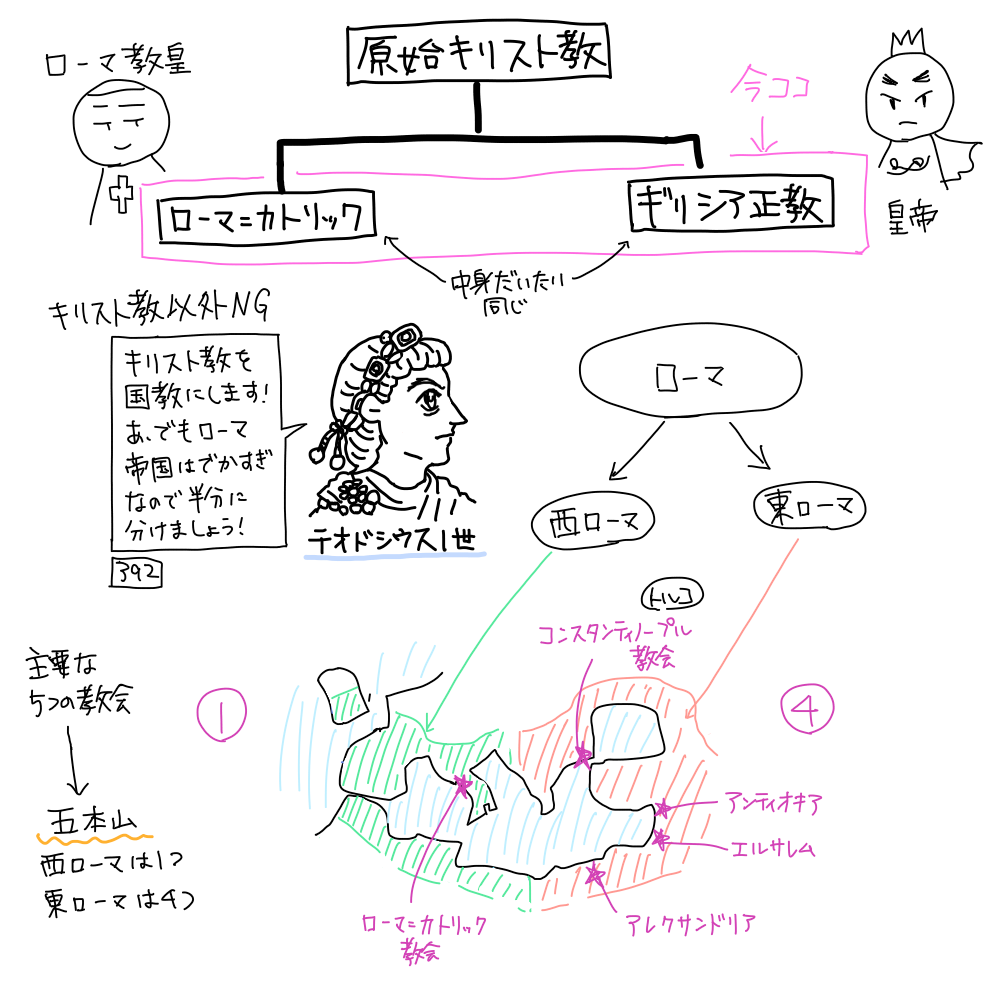 原始キリスト教
ローマ教皇
今ココ
ローマ=カトリック
ギリシア正教
皇帝
中身だいたい
同じ
キリスト教以外NG
キリスト教を
国教にします!
あ、でもローマ
帝国はでかすぎ
なので半分に
分けましょう!
392
テオドシウス1世
ローマ
西ローマ
東ローマ
トルコ
コンスタンティノープル
教会
主要な
5つの教会
1
4
五本山
西ローマは1つ
東ローマは4つ
アンティオキア
エルサレム
ローマ=カトリック
教会
アレクサンドリア